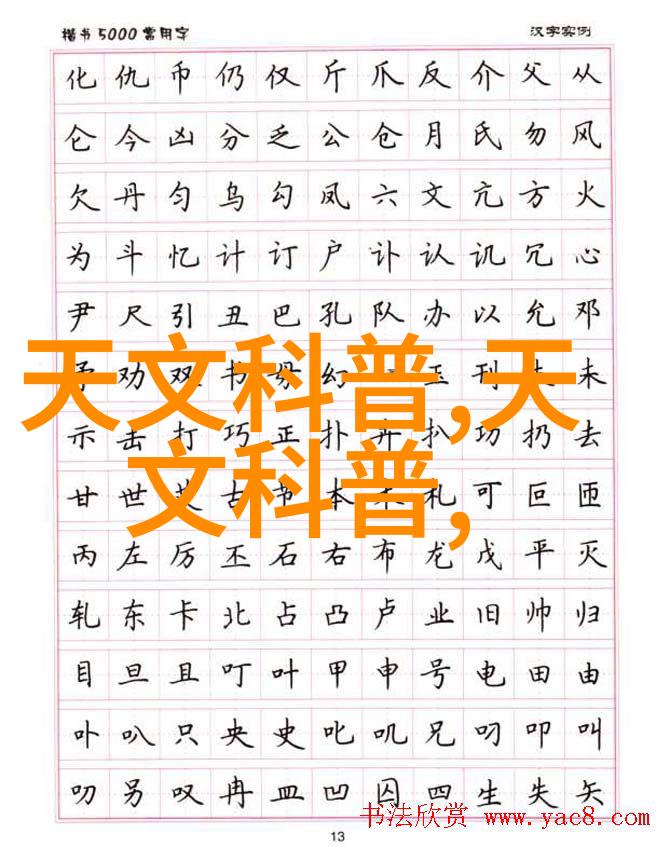 楷书5000常用字 汉字实例
化仇币仍仅斤爪反介父从
仑今凶分乏公仓月氏勿风
欠丹匀乌勾凤六文亢方火
为斗忆计订户讣认讥冗心
尹尺引丑巴孔队办以允邓
劝双书刊未
天文科普,天
示击打巧正扑扒功扔去
文科普,
甘世古节本札可叵匝
丙左厉丕石右布龙戊平灭
轧东卡北占凸卢业旧帅归
目旦且叮叶甲申号电田由
卟叭只央史叱叽兄叼叩叫
叻另叹冉皿凹囚四生失矢
书法欣赏 www.yac8.com
13